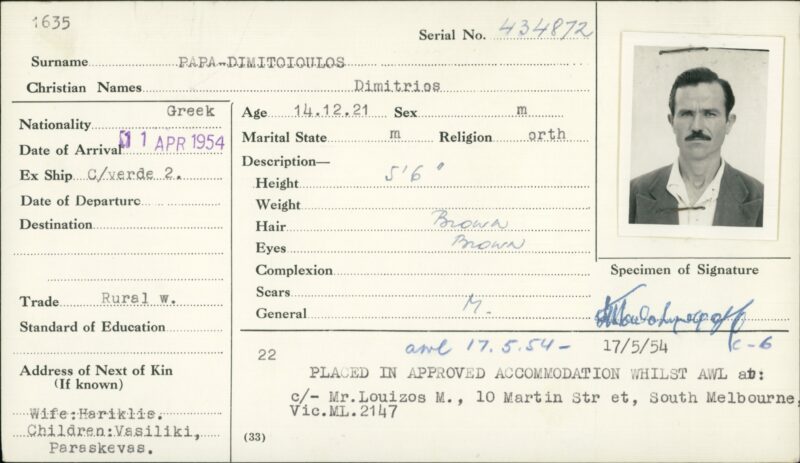 1635
Serial No. 434872
Surname PAPA-DIMITOIOULOS
Christian Names Dimitrios
Nationality Greek
Date of Arrival 11 APR 1954
Ex Ship C/verde 2.
Date of Departure
Destination
Trade Rural w.
Standard of Education
Address of Next of Kin
(If known)
Wife:Hariklis.
Children:Vasiliki,
Paraskevas.
Age 14.12.21 Sex m
Marital State m Religion orth
Description—
Height 5'6"
Weight
Hair Brown
Eyes Brown
Complexion
Scars
General M.
Specimen of Signature
22 awl 17.5.54- 17/5/54 C-6
PLACED IN APPROVED ACCOMMODATION WHILST AWL at:
c/- Mr.Louizos M., 10 Martin Str et, South Melbourne,
Vic.ML.2147
(33)